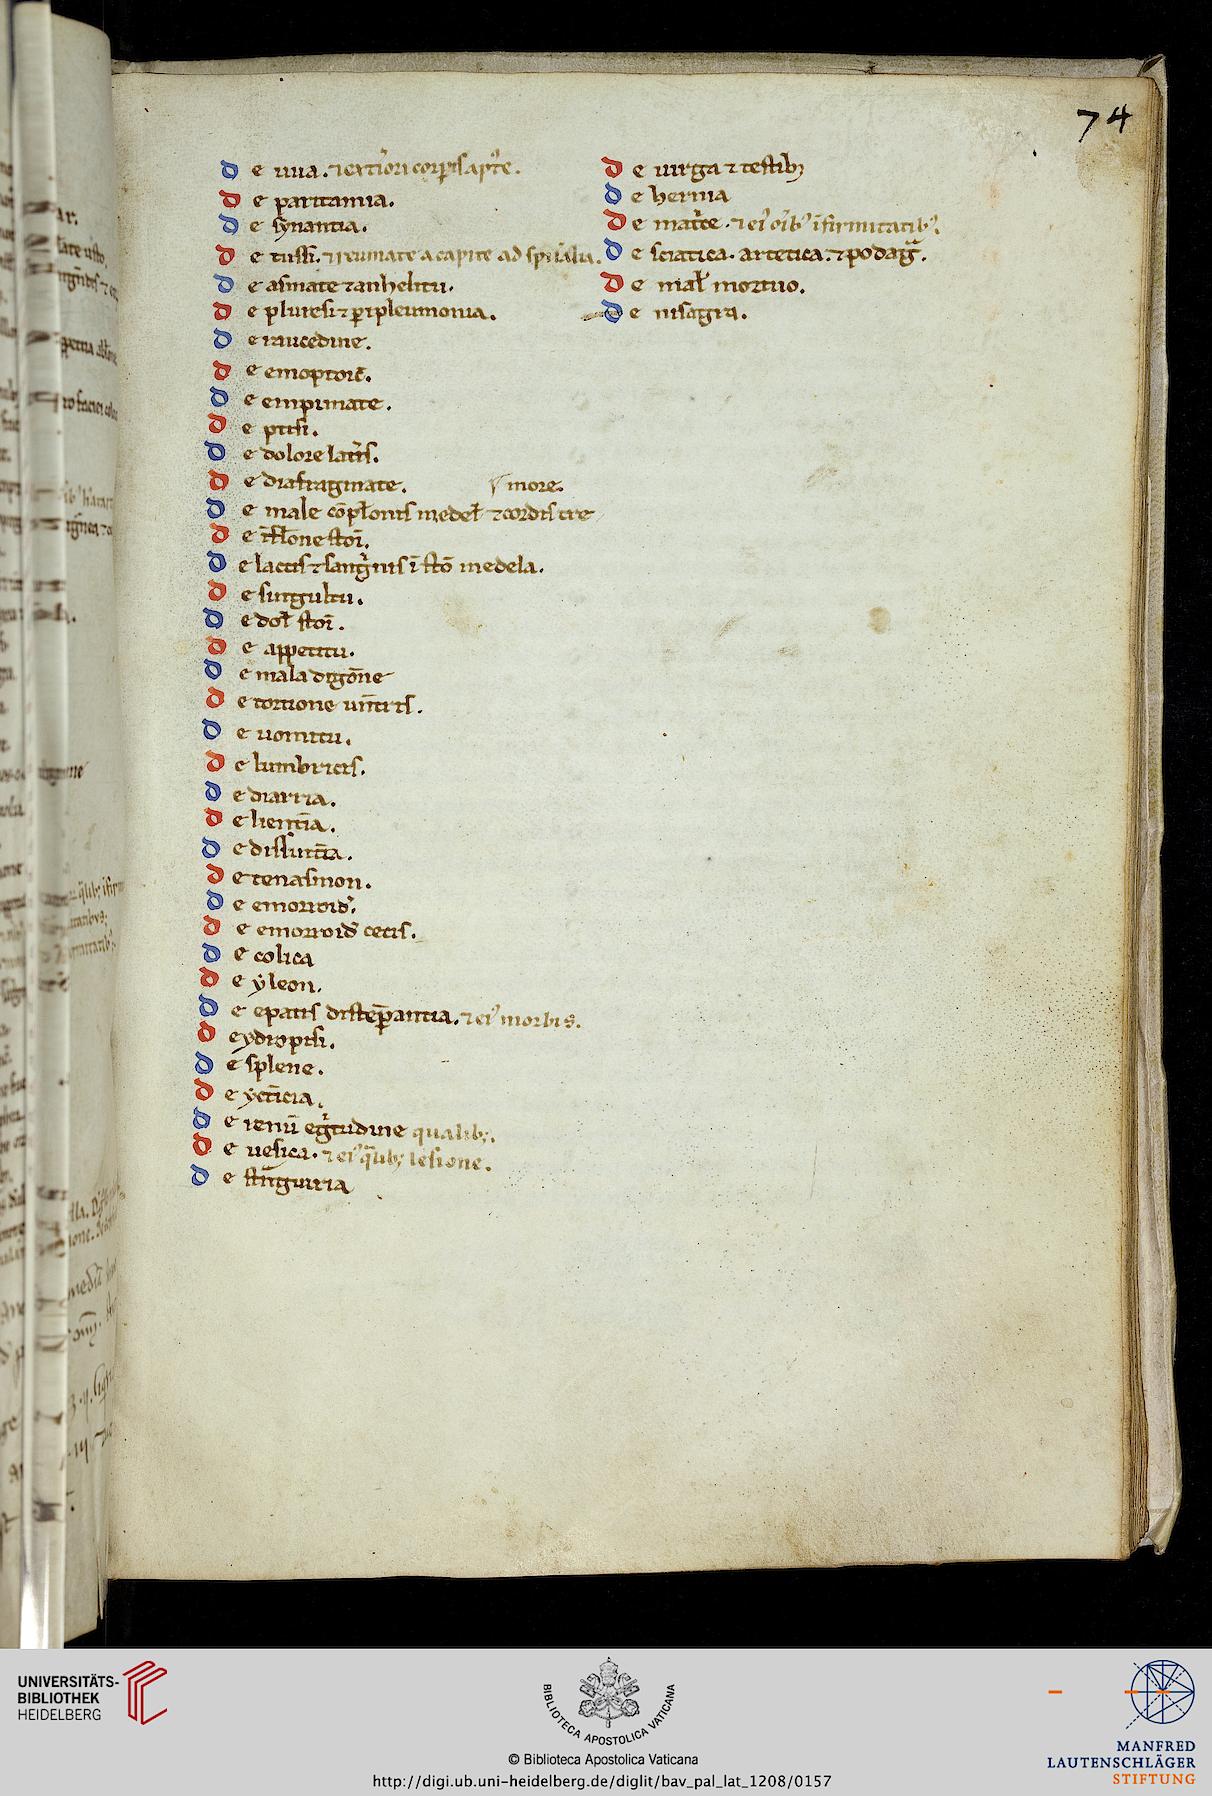 74
De uua. ⁊ ext'iori corp̄is ap'te.
De paritamia.
De synantia.
De tussi. ⁊ reumate a capite ad sp̄ualia.
De asmate ⁊ anhelitu.
De pluresi ⁊ p̄ipleumonia.
De raucedine.
De emoptoic̄.
De empimate.
De ptisi.
De dolore lat'is.
De diafragmate.
more.
De male cōpl̄onis medel̄ ⁊ cordis tre
De stōi.
De lactis ⁊ sang'nis ī stō medela.
De singultu.
De dol̄ stōi.
De appetitu.
De mala digōne
De tortione uēntris.
De uomitu.
De lumbricis.
De diarria.
De lientīa.
De dissint̄ia.
De tenasmon.
De emorroid'.
De emorroid' cecis.
De colica
De yleon.
De epatis distep̄antia. ⁊ ei' morbis.
De ydropisi.
De splene.
De yct̄icia.
De renū eg'tudine qualib;.
De uesica. ⁊ ei' q̄lib; lesione.
De st̄nguiria
De uirga ⁊ testib;
De hernia
De mat'ce. ⁊ ei' oīb' īfirmitatib'.
De sciatica. artetica. ⁊ podag̃.
De mal' mortuo.
De nisagra.
UNIVERSITÄTS-
BIBLIOTHEK
HEIDELBERG
BIBLIOTECA APOSTOLICA VATICANA
© Biblioteca Apostolica Vaticana
http://digi.ub.uni-heidelberg.de/diglit/bav_pal_lat_1208/0157
MANFRED
LAUTENSCHLÄGER
STIFTUNG